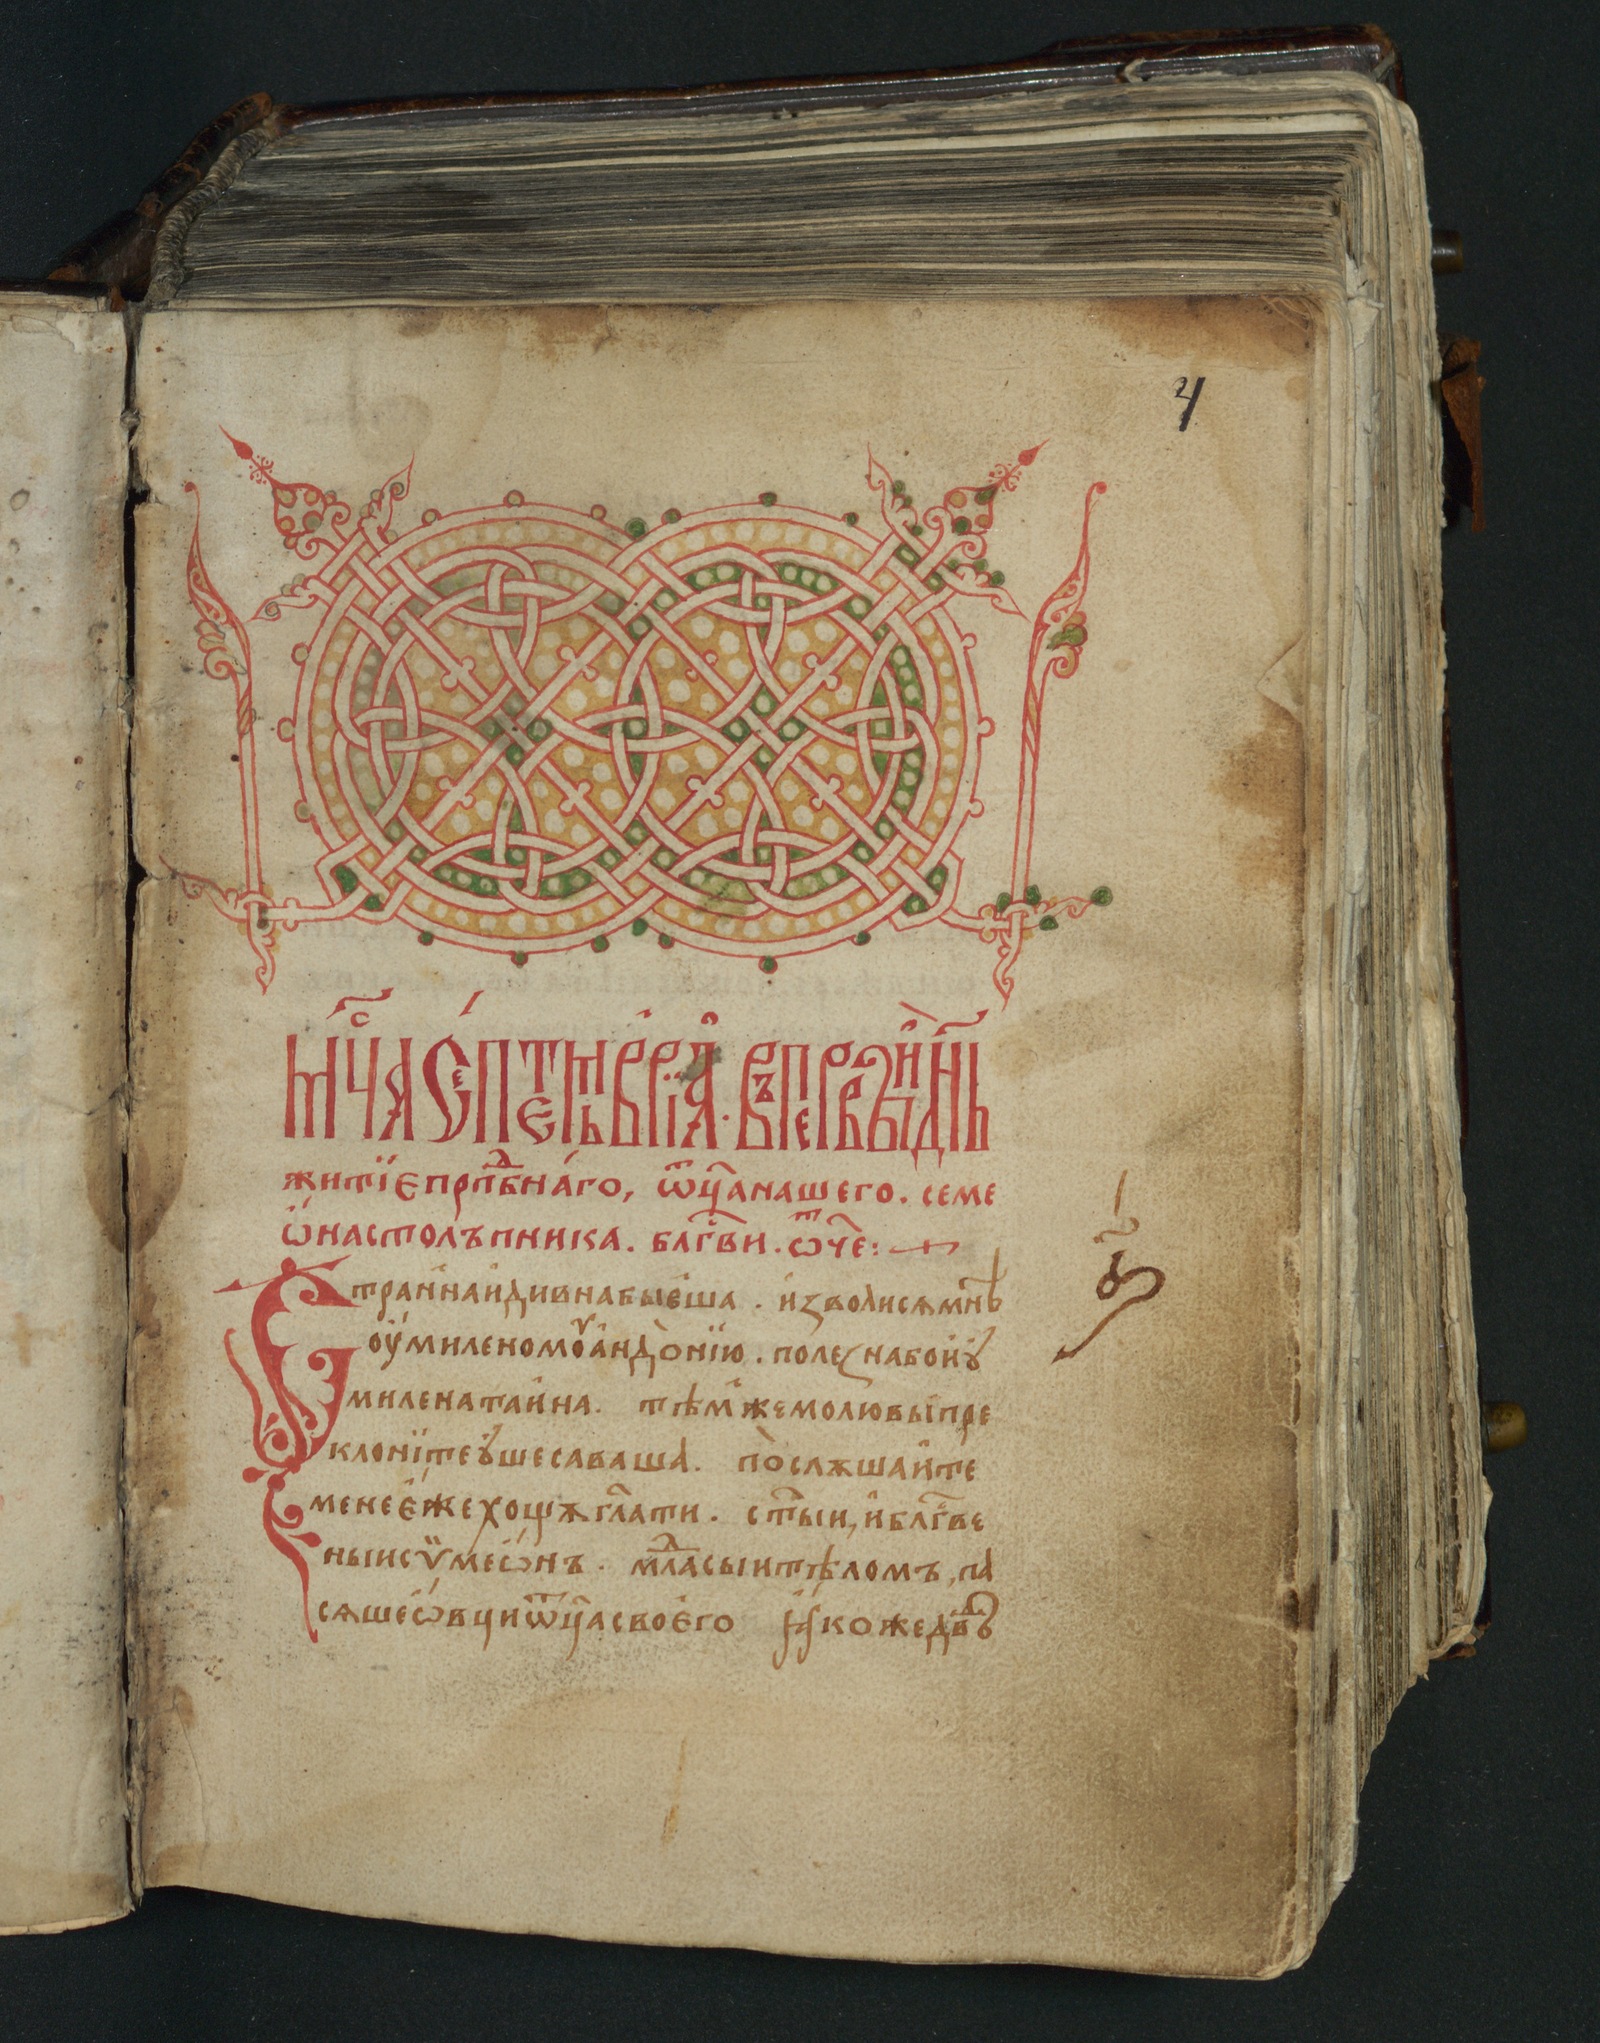 4
мⷭ҇ца септемврїа. въ первыи дн҃ь
житїе прпⷣбнаго, ѿц҃а нашего. семе
ѡна столъпника. блг҃ви. ѿч҃е:
Странна и дивна быеша. изволися мнѣ
оумиленомоу андонїю. полезна бо и ꙋ
милена таина. тѣмже молю вы пре
клоните ꙋшеса ваша. послѫшаите
мене еже хощѫ гл҃ати. ст҃ыи, и блг҃ве
ныи сѵмеѡнъ. млⷣа сыи тѣломъ, па
сяше ѡвци ѿц҃а своего ꙗкоже дв҃ⷣъ